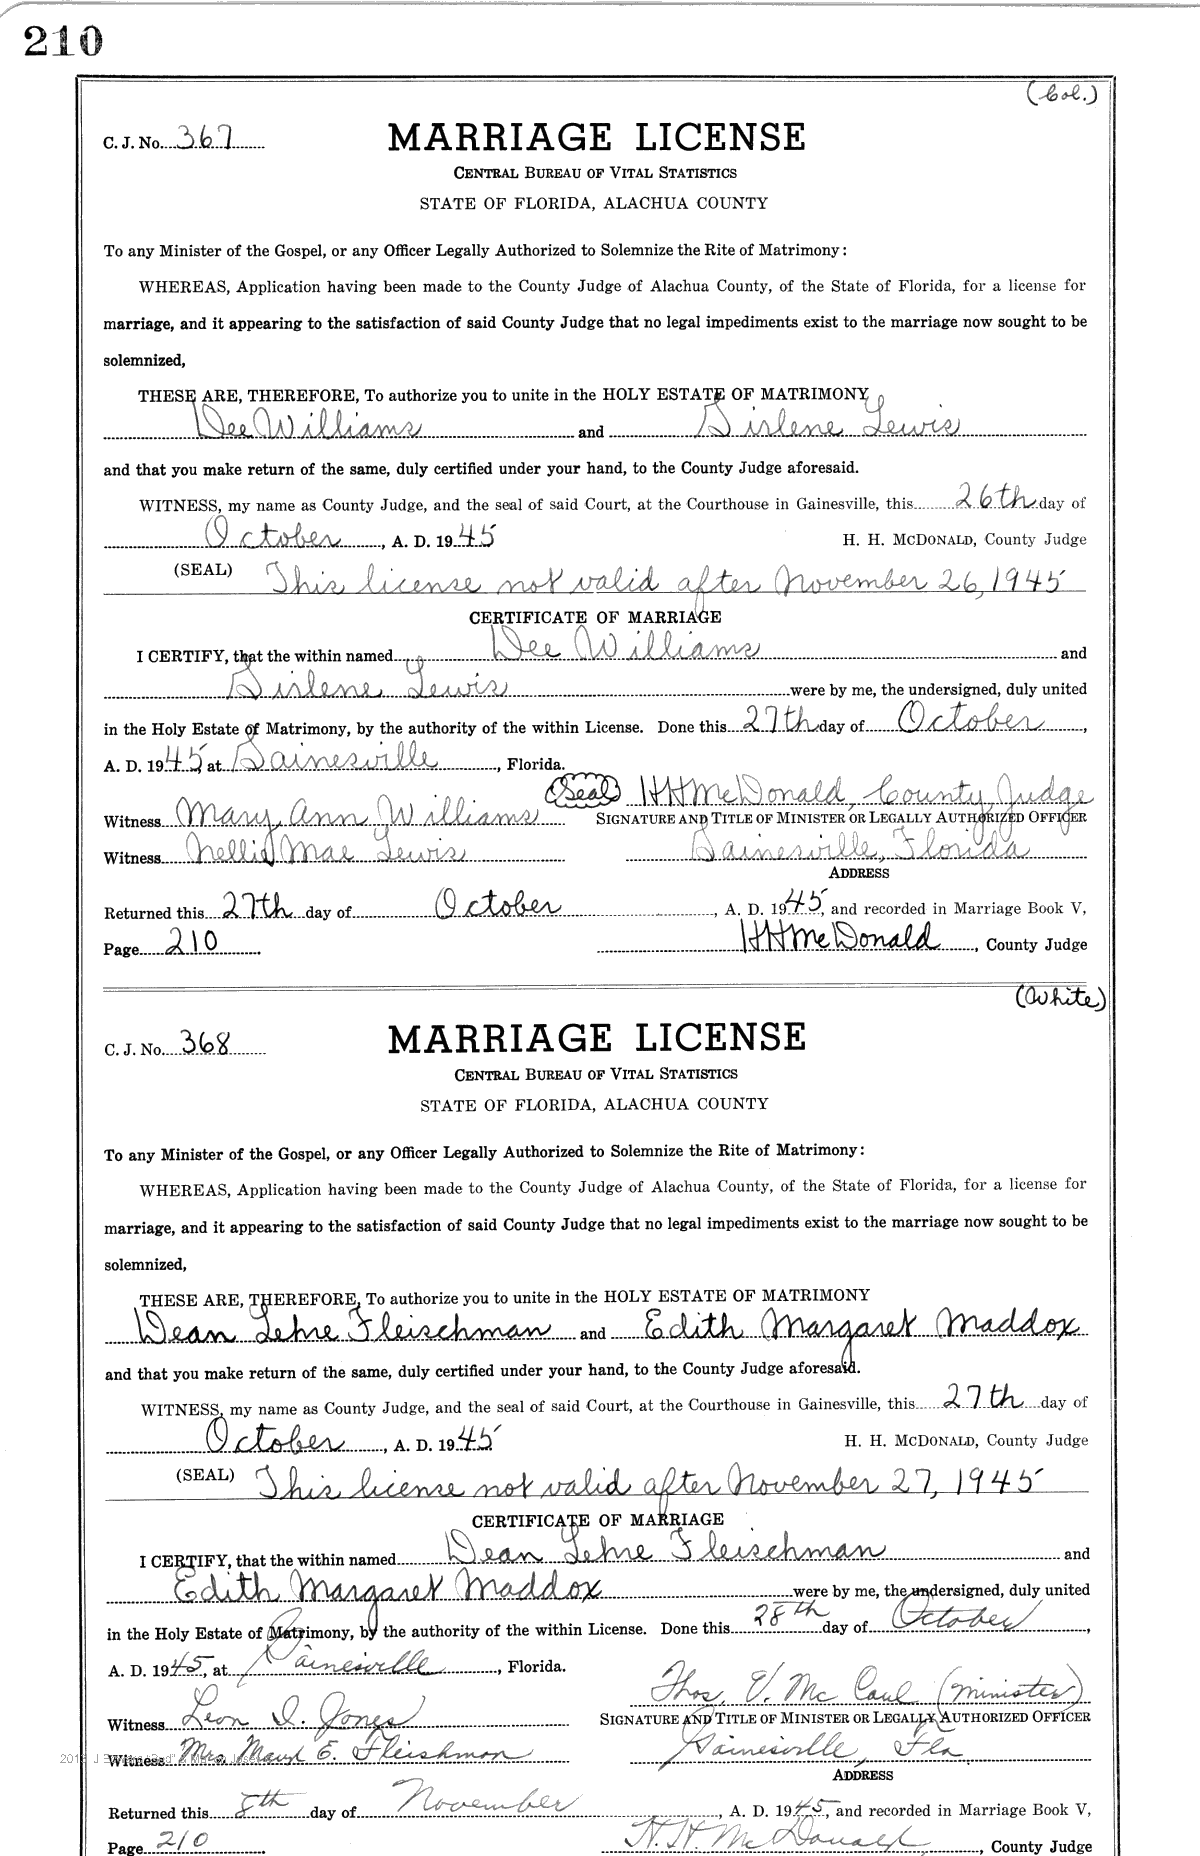 210
(Col.)
C. J. No. 367
MARRIAGE LICENSE
CENTRAL BUREAU OF VITAL STATISTICS
STATE OF FLORIDA, ALACHUA COUNTY
To any Minister of the Gospel, or any Officer Legally Authorized to Solemnize the Rite of Matrimony:
WHEREAS, Application having been made to the County Judge of Alachua County, of the State of Florida, for a license for
marriage, and it appearing to the satisfaction of said County Judge that no legal impediments exist to the marriage now sought to be
solemnized,
THESE ARE, THEREFORE, To authorize you to unite in the HOLY ESTATE OF MATRIMONY
Dee Williams and Girlene Lewis
and that you make return of the same, duly certified under your hand, to the County Judge aforesaid.
WITNESS, my name as County Judge, and the seal of said Court, at the Courthouse in Gainesville, this 26th day of
October, A. D. 1945 H. H. MCDONALD, County Judge
(SEAL) This license not valid after November 26, 1945
CERTIFICATE OF MARRIAGE
I CERTIFY, that the within named Dee Williams and
Girlene Lewis were by me, the undersigned, duly united
in the Holy Estate of Matrimony, by the authority of the within License. Done this 27th day of October,
A. D. 1945, at Gainesville, Florida.
(Seal) HHMcDonald, County Judge
Witness Mary Ann Williams SIGNATURE AND TITLE OF MINISTER OR LEGALLY AUTHORIZED OFFICER
Witness Nellie Mae Lewis Gainesville, Florida
ADDRESS
Returned this 27th day of October, A. D. 1945, and recorded in Marriage Book V,
Page 210 HHMcDonald, County Judge
(White)
C. J. No. 368
MARRIAGE LICENSE
CENTRAL BUREAU OF VITAL STATISTICS
STATE OF FLORIDA, ALACHUA COUNTY
To any Minister of the Gospel, or any Officer Legally Authorized to Solemnize the Rite of Matrimony:
WHEREAS, Application having been made to the County Judge of Alachua County, of the State of Florida, for a license for
marriage, and it appearing to the satisfaction of said County Judge that no legal impediments exist to the marriage now sought to be
solemnized,
THESE ARE, THEREFORE, To authorize you to unite in the HOLY ESTATE OF MATRIMONY
Dean Lehre Fleischman and Edith Margaret Maddox
and that you make return of the same, duly certified under your hand, to the County Judge aforesaid.
WITNESS, my name as County Judge, and the seal of said Court, at the Courthouse in Gainesville, this 27th day of
October, A. D. 1945 H. H. MCDONALD, County Judge
(SEAL) This license not valid after November 27, 1945
CERTIFICATE OF MARRIAGE
I CERTIFY, that the within named Dean Lehre Fleischman and
Edith Margaret Maddox were by me, the undersigned, duly united
in the Holy Estate of Matrimony, by the authority of the within License. Done this 28th day of October,
A. D. 1945, at Gainesville, Florida.
Thos. V. McCaul (Minister)
Witness Leon I. Jones SIGNATURE AND TITLE OF MINISTER OR LEGALLY AUTHORIZED OFFICER
Witness Mrs. Mary E. Fleishman Gainesville, Fla
ADDRESS
Returned this 8th day of November, A. D. 1945, and recorded in Marriage Book V,
Page 210 H. H. McDonald, County Judge